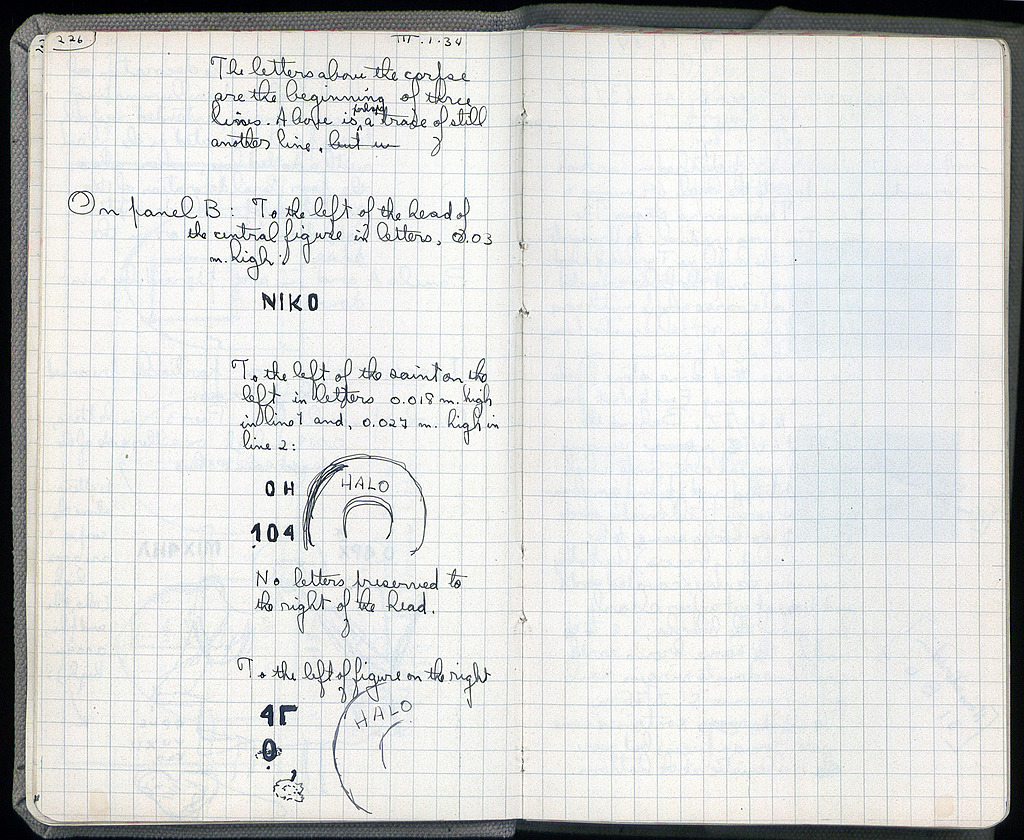 226
III.1.34
The letters above the corpse
are the beginning of three
lines. Above is perhaps a trace of still
another line, but un
On panel B: To the left of the head of
the central figure in letters, 0.03
m. high:
NIKO
To the left of the saint on the
left in letters 0.018 m. high
in line 1 and, 0.027 m. high in
line 2:
OH
HALO
104
No letters preserved to
the right of the head.
To the left of figure on the right
4Γ
HALO
O